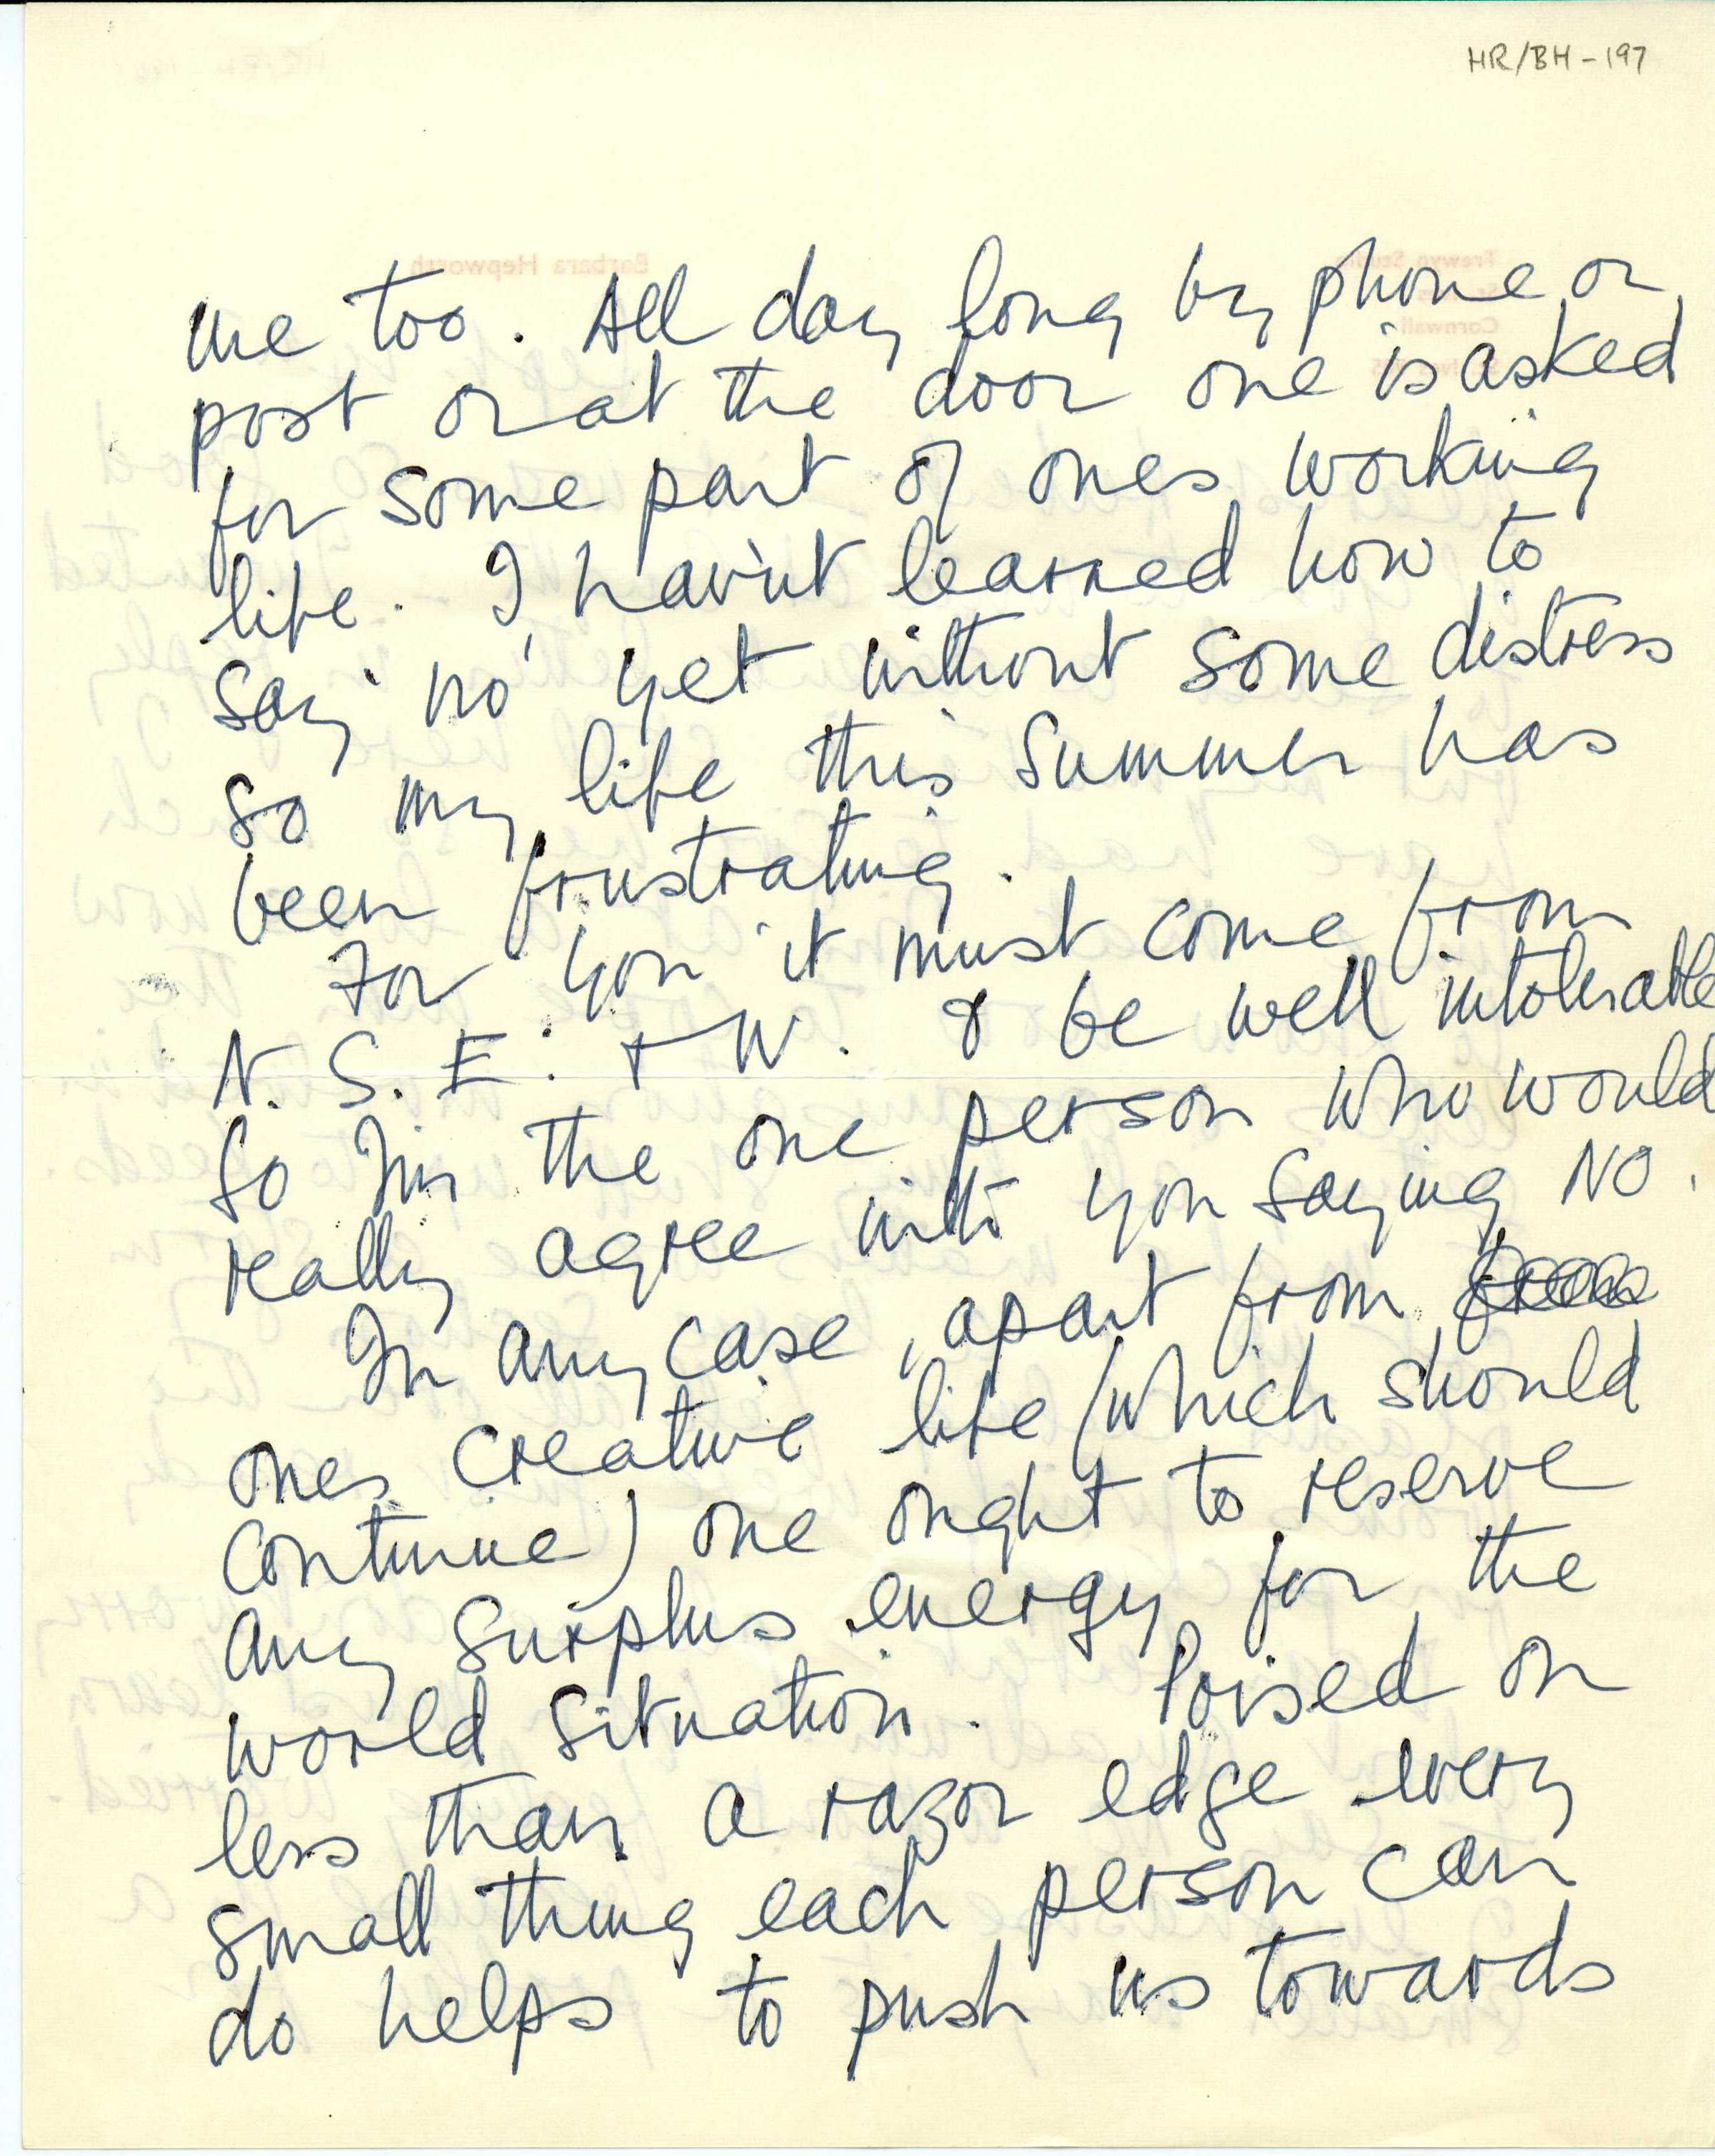 HR/BH - 197
me too. All day long by phone or
post or at the door one is asked
for some part of ones working
life. I hav'nt learned how to
say 'no' yet without some distress
so my life this summer has
been frustrating.
For you it must come from
N. S. E. + W. & be well intolerable
So I'm the one person who would
really agree with you saying NO.
In any case, apart from
ones creative life (which should
continue) one ought to reserve
any surplus energy for the
world situation. Poised on
less than a razor edge every
small thing each person can
do helps to push us towards